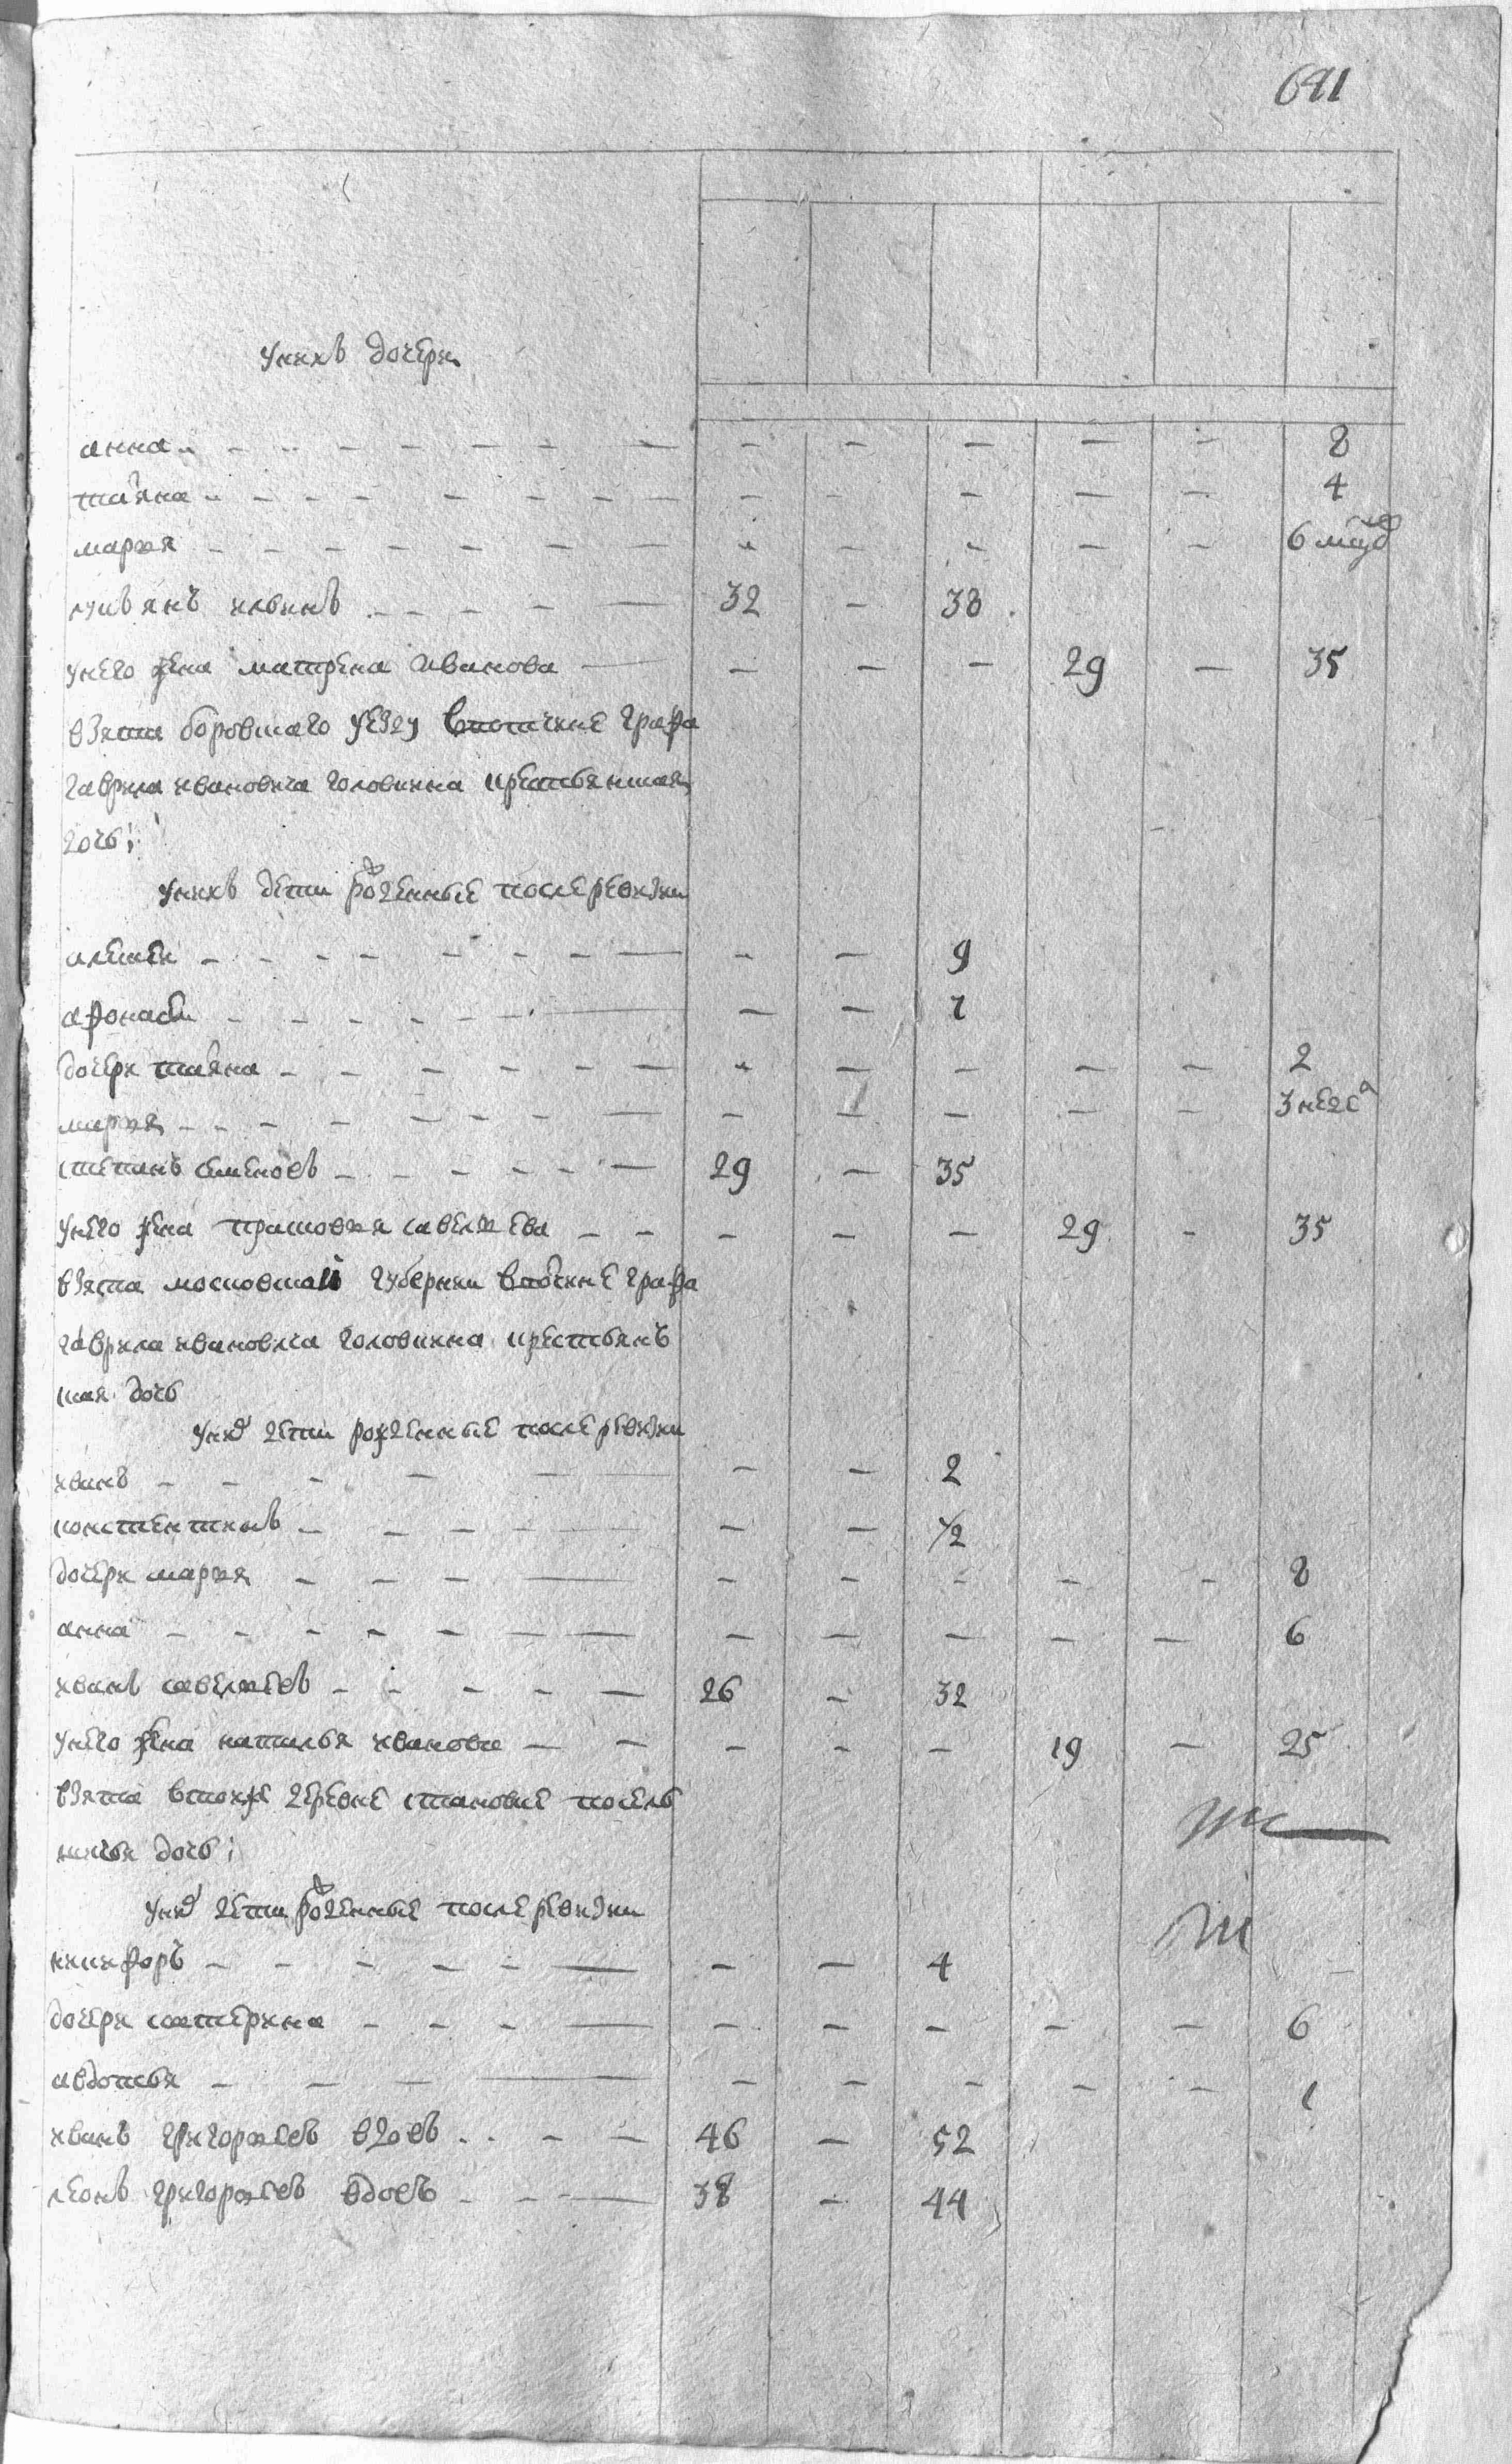 691
у них дочери
анна - - - - - - 8
татьяна - - - - - - 4
марья - - - - - - 6 мцов
лукьянъ ивлинъ 32 - 38
у него жена матрена иванова - - - 29 - 35
взята боровского уезду в вотчине графа
гаврила ивановича головкина крестьянская
дочь
у нихъ дети рожденные после ревизии
алексеи - - - 9
афонасеи - - - 7
дочери татьяна - - - - - 2
марья - - - - - 3 недел
степанъ семеновъ 29 - 35
у него жена прасковья савельева - - - 29 - 35
взята московской губернии в вотчине графа
гаврила ивановича головкина крестьянъ
ская дочь
у них дети рожденные после ревизии
иванъ - - - 2
констентинъ - - 1/2
дочери марья - - - - - 8
анна - - - - - 6
иванъ савельевъ 26 - 32
у него жена наталья иванова - - - 19 - 25
взята в тои же деревне посель
ничья дочь
у них дети рожденные после ревизии
никифоръ - - 4
дочери катерина - - - - - 6
авдотья - - - - - 1
иванъ григорьевъ вдовъ 46 - 52
леонъ григорьевъ вдовъ 38 - 44